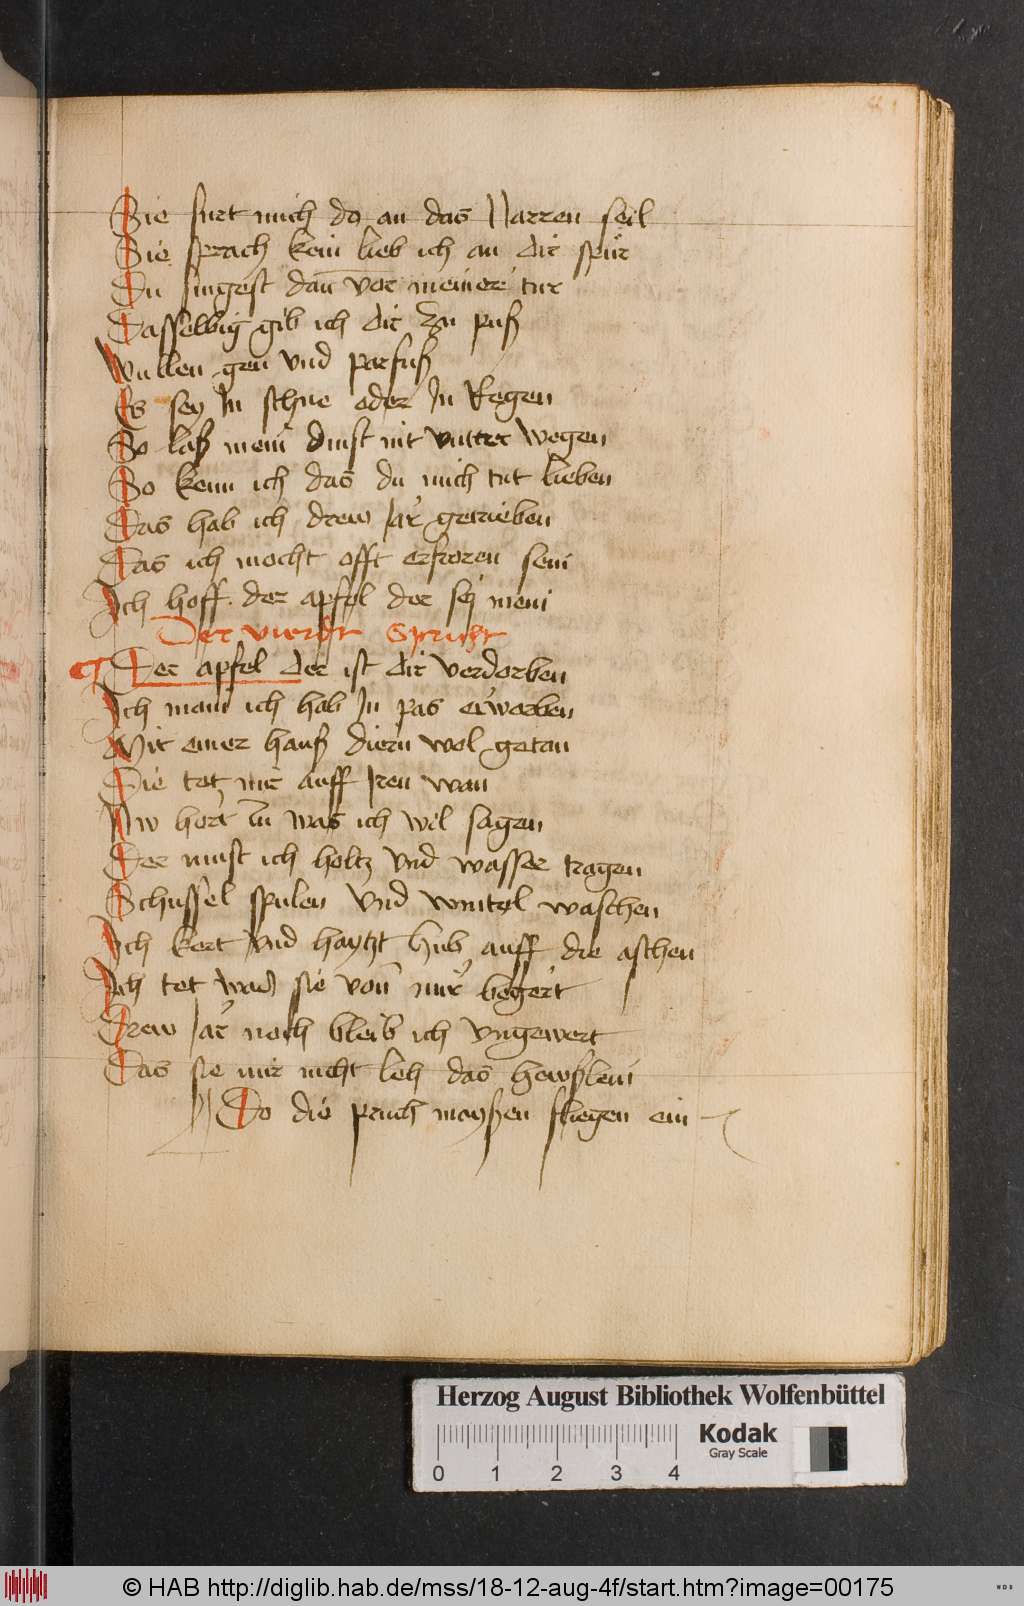 Sie furt mich do an das Narren seil
Sie sprach kein lieb ich an dir spür
Du singest dan vor meiner tur
Dasselbig gib ich dir zu puß
Wullen gen vnd parfuß
Es sey In schne oder In Regen
So laß mein dinst nit vnter wegen
So kenn ich das du mich tut lieben
Das hab ich drew Jar getrieben
Das ich mocht offt erfroren sein
Ich hoff der apfel der sej mein
Der vierdt Spricht
Der apfel der ist dir verdorben
Ich main ich hab In pas erworben
Mit einer hauß diern wol getan
Die tet mir auff Iren wan
Nw hort zu was ich wil sagen
Der must ich holtz vnd wasser tragen
Schussel spulen vnd wintel waschen
Ich kert vnd haytzt hub auff die aschen
Ich tet was sie von mir begert
Drew Jar noch bleib ich vngewert
Das sie mir nicht leh das hewßlein
Do die pruch mayßen fliegen ein
Herzog August Bibliothek Wolfenbüttel
Kodak
Gray Scale
0 1 2 3 4
© HAB http://diglib.hab.de/mss/18-12-aug-4f/start.htm?image=00175